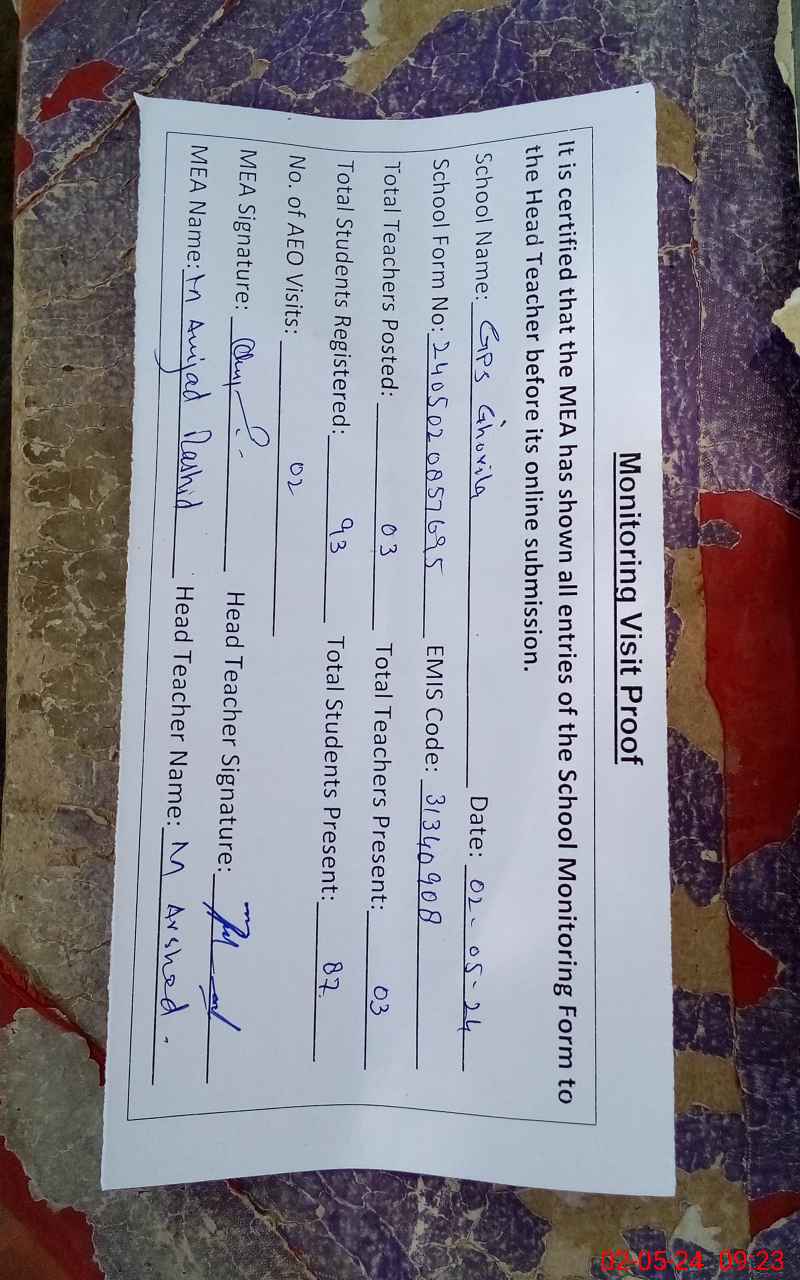 Monitoring Visit Proof
It is certified that the MEA has shown all entries of the School Monitoring Form to
the Head Teacher before its online submission.
School Name: GPS Ghorila Date: 02-05-24
School Form No: 2405020857695 EMIS Code: 31340908
Total Teachers Posted: 03 Total Teachers Present: 03
Total Students Registered: 93 Total Students Present: 87
No. of AEO Visits: 02
MEA Signature: Head Teacher Signature:
MEA Name: M Amjad Rashid Head Teacher Name: M Arshad.
02-05-24 09:23